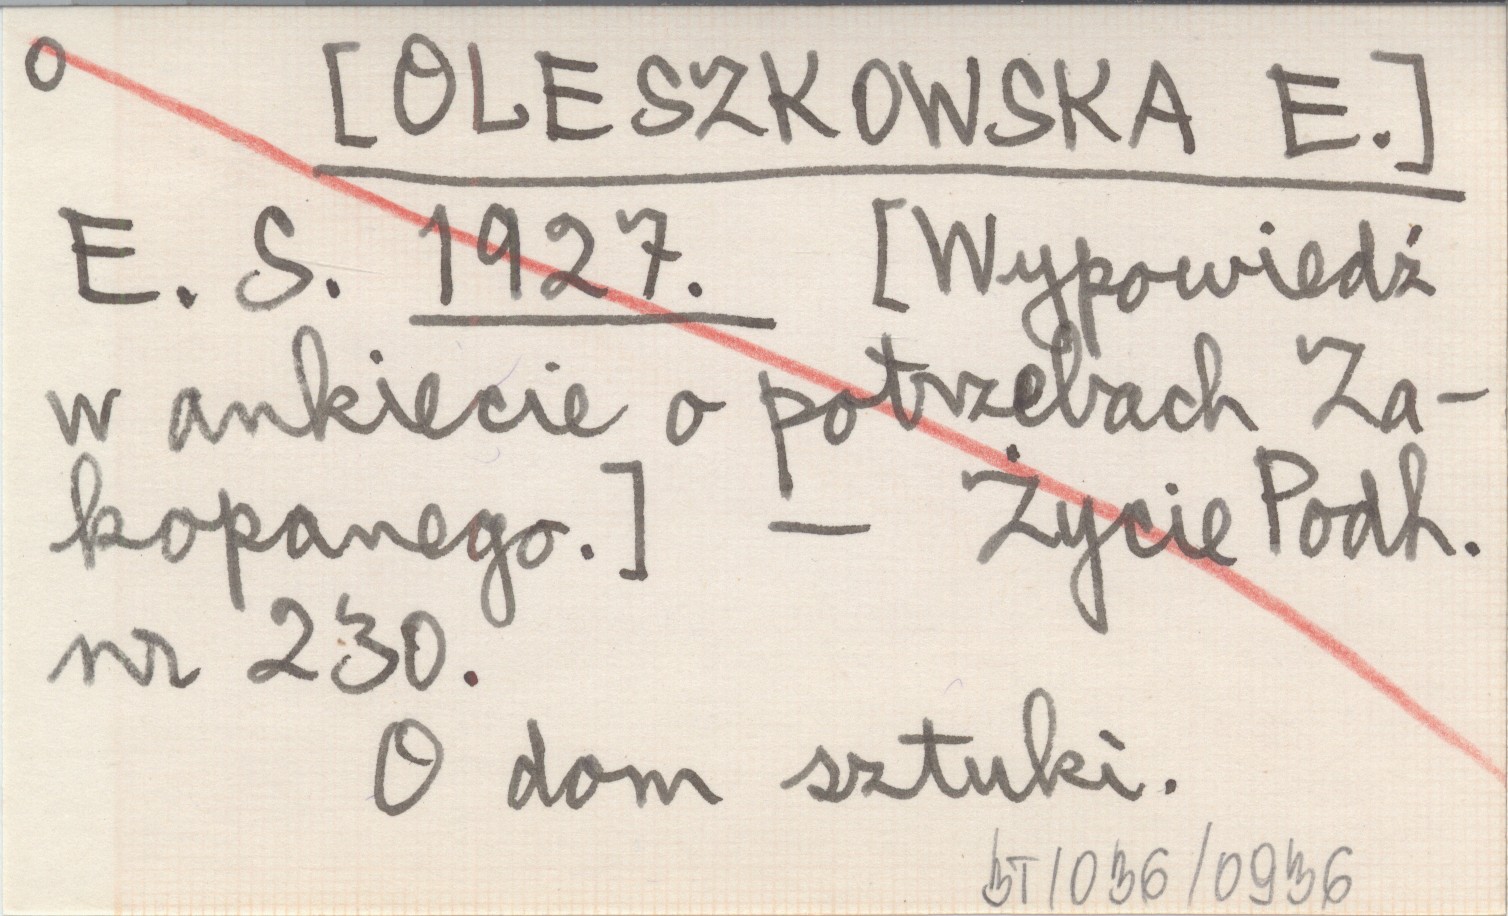 o [OLESZKOWSKA E.]
E. S. 1927. [Wypowiedź
w ankiecie o potrzebach Za-
kopanego.] — Życie Podh.
nr 230.
O dom sztuki.
BT/036/0936